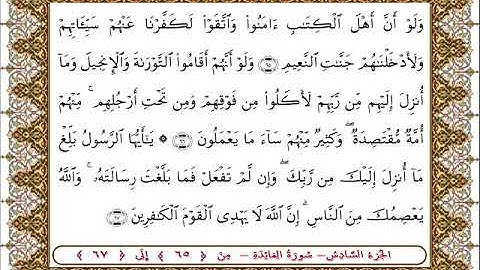 وَلَوْ أَنَّ أَهْلَ ٱلْكِتَٰبِ ءَامَنُوا۟ وَٱتَّقَوْا۟ لَكَفَّرْنَا عَنْهُمْ سَيِّـَٔاتِهِمْ
وَلَأَدْخَلْنَٰهُمْ جَنَّٰتِ ٱلنَّعِيمِ ۝٦٥ وَلَوْ أَنَّهُمْ أَقَامُوا۟ ٱلتَّوْرَىٰةَ وَٱلْإِنجِيلَ وَمَآ
أُنزِلَ إِلَيْهِم مِّن رَّبِّهِمْ لَأَكَلُوا۟ مِن فَوْقِهِمْ وَمِن تَحْتِ أَرْجُلِهِم ۚ مِّنْهُمْ
أُمَّةٌ مُّقْتَصِدَةٌ ۖ وَكَثِيرٌ مِّنْهُمْ سَآءَ مَا يَعْمَلُونَ ۝٦٦ ۞ يَٰٓأَيُّهَا ٱلرَّسُولُ بَلِّغْ
مَآ أُنزِلَ إِلَيْكَ مِن رَّبِّكَ ۖ وَإِن لَّمْ تَفْعَلْ فَمَا بَلَّغْتَ رِسَالَتَهُۥ ۚ وَٱللَّهُ
يَعْصِمُكَ مِنَ ٱلنَّاسِ ۗ إِنَّ ٱللَّهَ لَا يَهْدِى ٱلْقَوْمَ ٱلْكَٰفِرِينَ ۝٦٧
الجزء السَّادسُ – سُورَةُ المَائِدَةِ – مِنْ ﴿ ٦٥ ﴾ إِلَى ﴿ ٦٧ ﴾